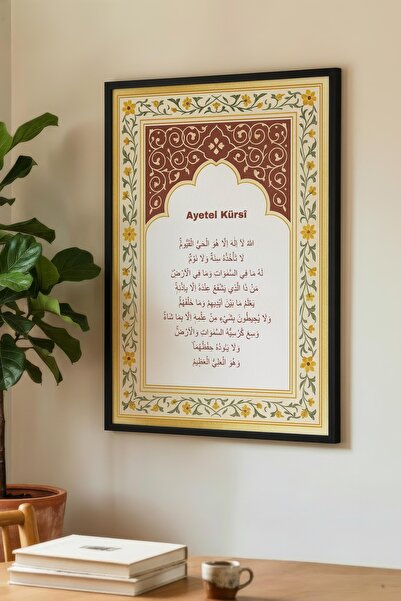 Ayetel Kürsî
اَللهُ لَا اِلٰهَ اِلَّا هُوَ الْحَيُّ الْقَيُّومُ
لَا تَأْخُذُهُ سِنَةٌ وَلَا نَوْمٌ
لَهُ مَا فِي السَّمٰوَاتِ وَمَا فِي الْاَرْضِ
مَنْ ذَا الَّذِي يَشْفَعُ عِنْدَهُ اِلَّا بِاِذْنِهِ
يَعْلَمُ مَا بَيْنَ اَيْدِيهِمْ وَمَا خَلْفَهُمْ
وَلَا يُحِيطُونَ بِشَيْءٍ مِنْ عِلْمِهِ اِلَّا بِمَا شَاءَ
وَسِعَ كُرْسِيُّهُ السَّمٰوَاتِ وَالْاَرْضَ
وَلَا يَئُودُهُ حِفْظُهُمَا
وَهُوَ الْعَلِيُّ الْعَظِيمُ